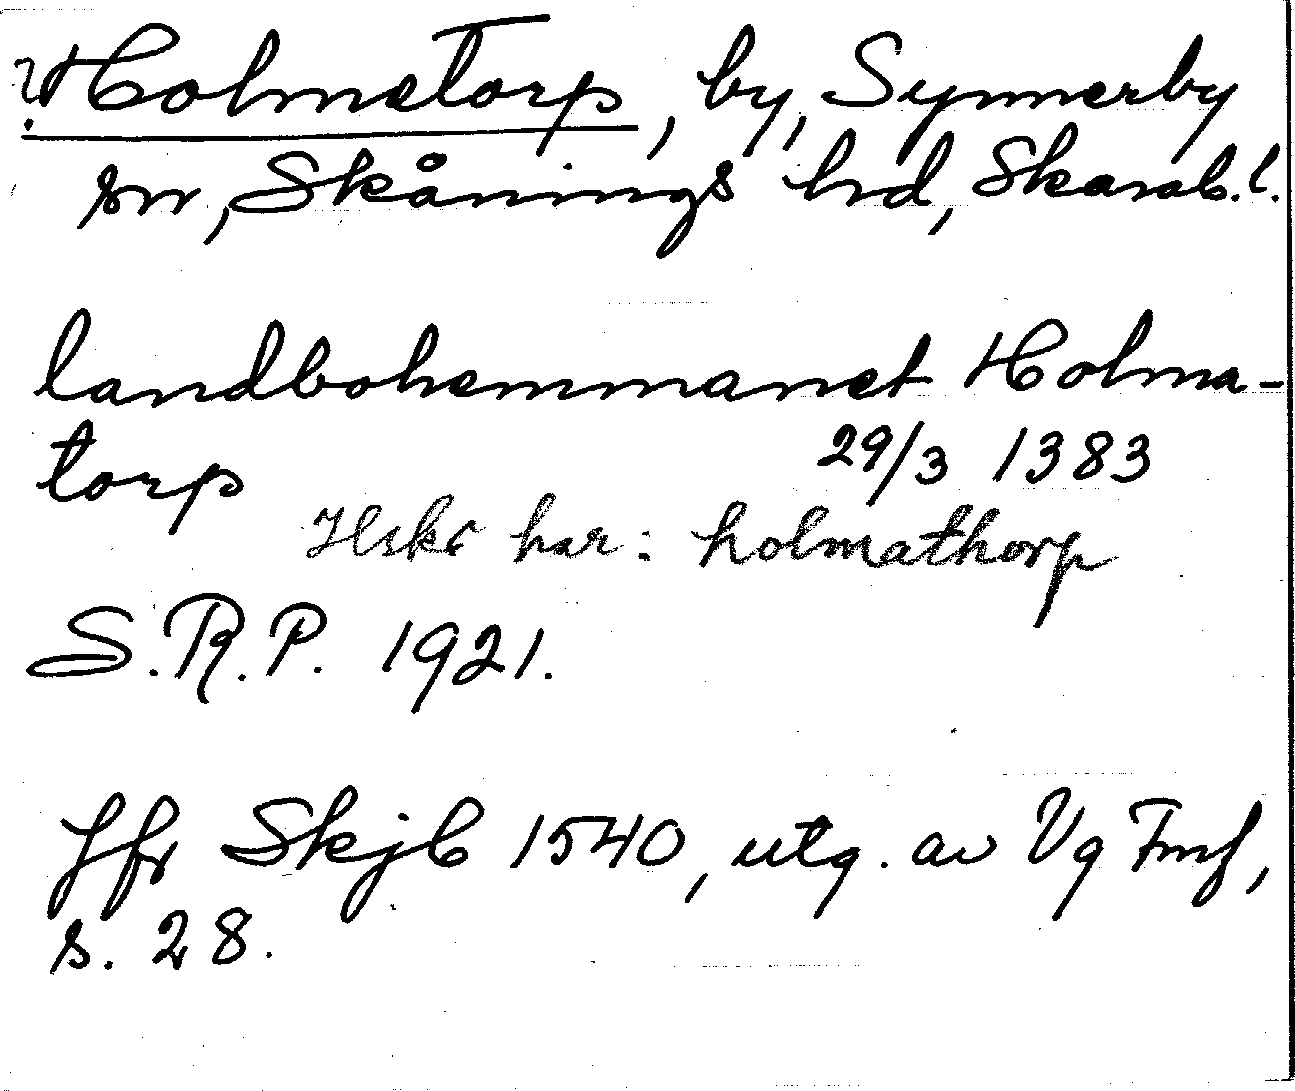 ? Holmetorp, by, Synnerby
sn, Skånings hrd, Skarab. l.
landbohemmanet Holma-
torp 29/3 1383
Hskr har: holmathorp
S.R.P. 1921.
Jfr Skjb 1540, utg. av Vg Fmf,
s. 28.